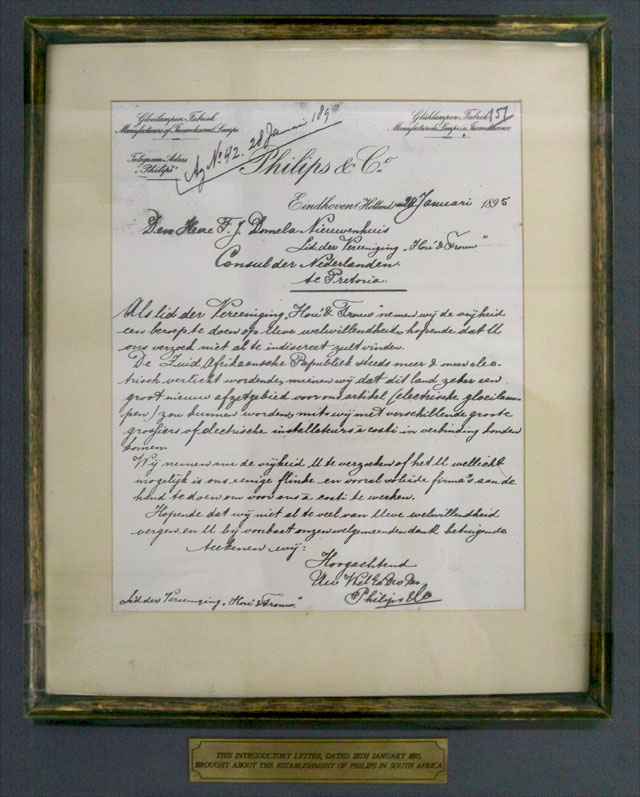 Gloeilampen-Fabriek
Manufacturers of Incandescent Lamps
Telegram-Adres
"Philips"
Ag No 42. 28 Januari 189
Gloeilampen-Fabriek
157
Philips & Co
Eindhoven (Holland) 28 Januari 1895
Den Heer F. J. Domela Nieuwenhuis
Lid der Vereeniging "Hou' & Trouw"
Consul der Nederlanden.
te Pretoria.
Als lid der Vereeniging "Hou' & Trouw" nemen wij de vrijheid
een beroep te doen op Uwe welwillendheid, hopende dat U
ons verzoek niet al te indiscreet zult vinden.
De Zuid Afrikaansche Republiek steeds meer & meer elec-
trisch verlicht wordende, meenen wij dat dit land zeker een
groot nieuw afzetgebied voor ons artikel (electrische gloeilam-
pen) zou kunnen worden, mits wij met verschillende groote
grossiers of electrische installateurs à costi in verbinding konden
komen.
Wij nemen nu de vrijheid U te verzoeken of het U wellicht
mogelijk is ons eenige flinke en vooral solide firma's aan de
hand te doen om voor ons à costi te werken.
Hopende dat wij niet al te veel van Uwe welwillendheid
vergen en U bij voorbaat onzen welgemeenden dank betuigende
teekenen wij:
Hoogachtend
Philips & Co
Lid der Vereeniging "Hou' & Trouw."
THIS INTRODUCTORY LETTER, DATED 28TH JANUARY 1895,
BROUGHT ABOUT THE ESTABLISHMENT OF PHILIPS IN SOUTH AFRICA